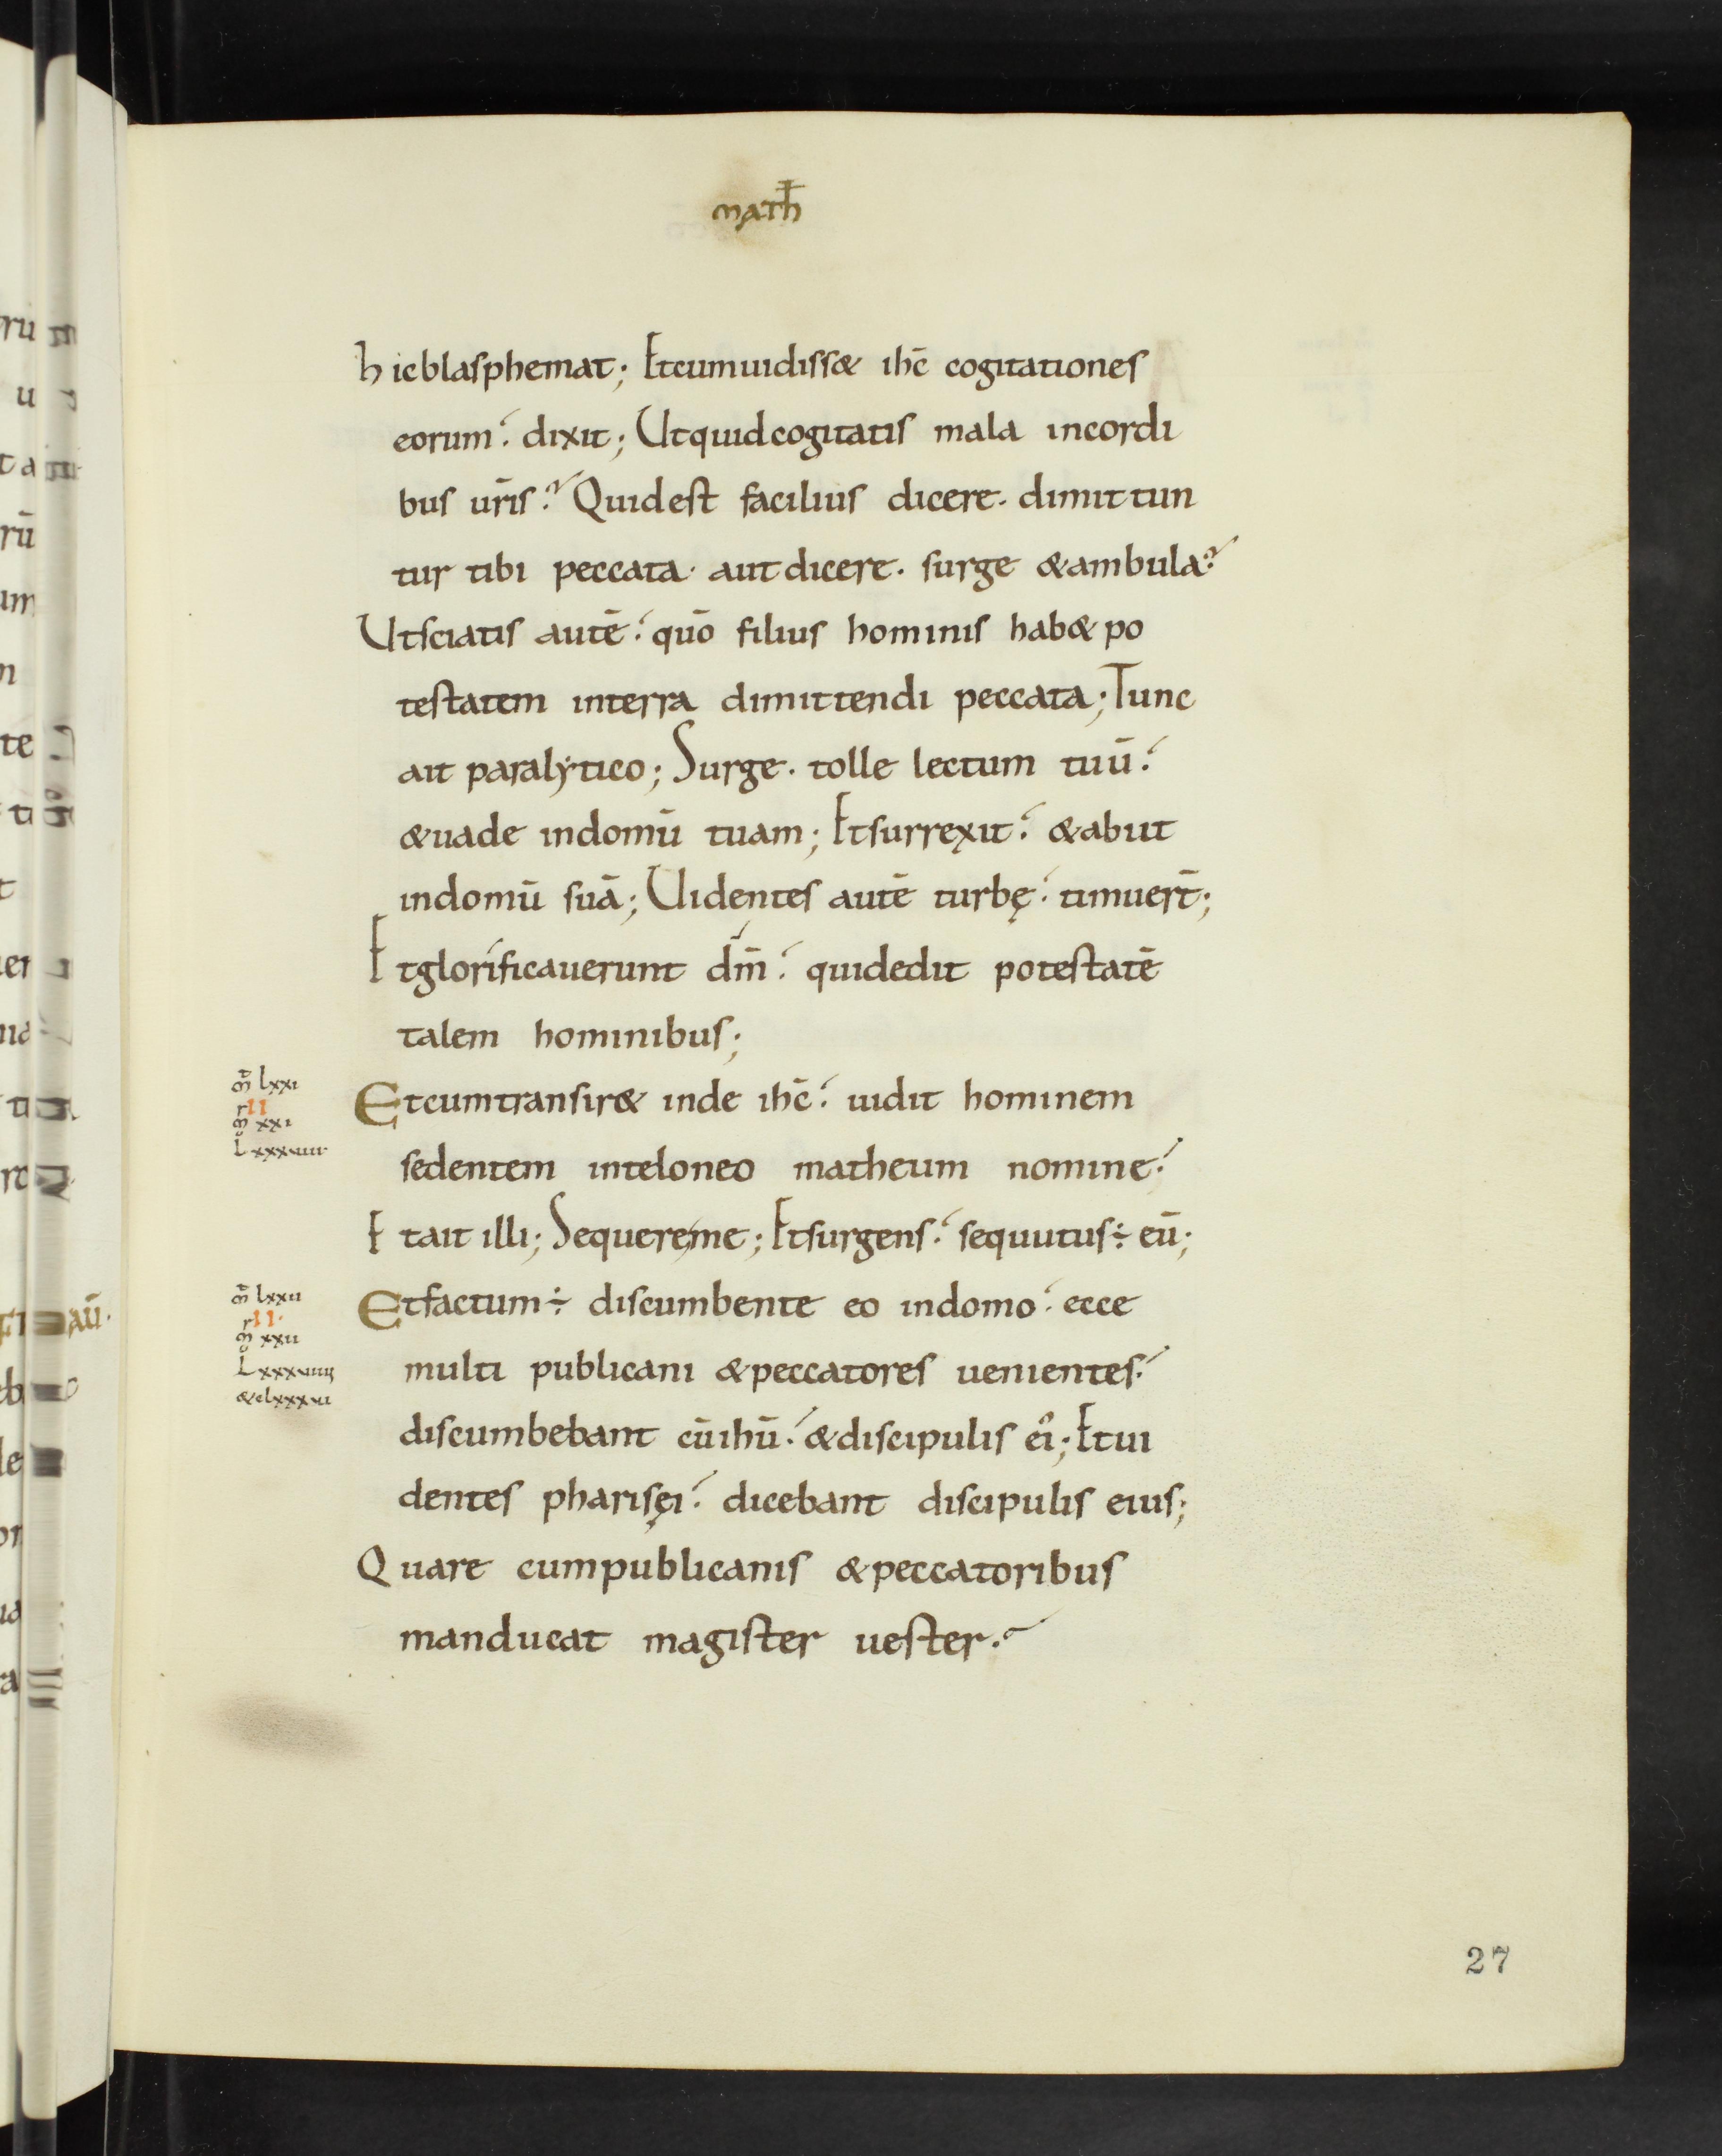 math̄
hicblasphemat; Etcumuidiss& ihc̄ cogitationes
eorum. dixit; Utquidcogitatis mala incordi
bus ur̄is? Quidest facilius dicere. dimittun
tur tibi peccata. autdicere. surge &ambula?
Utsciatis autē. quō filius hominis hab& po
testatem interra dimittendi peccata; Tunc
ait paralytico; Surge. tolle lectum tuū.
&uade indomū tuam; Etsurrexit. &abiit
indomū suā; Uidentes autē turbę. timuer̄t;
Etglorificauerunt dm̄. quidedit potestatē
talem hominibus;
m̄t lxxi
r II
mr̄ xxi
L xxxuiii
Etcumtransir& inde ihc̄. uidit hominem
sedentem inteloneo matheum nomine.
Etait illi; Sequereme; Etsurgens. sequutus÷ eū;
m̄t lxxii
r II.
mr̄ xxii
L xxxuiiii
&clxxxui
Etfactum÷ discumbente eo indomo. ecce
multi publicani &peccatores uenientes.
discumbebant cūihū. &discipulis ei᾿; Etui
dentes pharisęi. dicebant discipulis eius;
Quare cumpublicanis &peccatoribus
manducat magister uester?
27